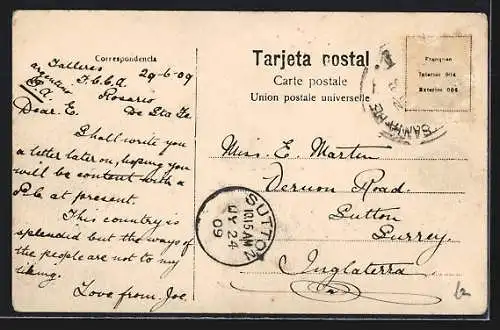 Correspondencia
Talleres
F.C.C.A. 29-6-09
Argentino
S.A.
Rosario
de Sta Fe
Dear E.
I shall write you
a letter later on, hoping you
will be content with a
P.C. at present.
This country is
splendid but the ways of
the people are not to my
liking.
Love from Joe.
Tarjeta postal
Carte postale
Union postale universelle
Franqueo
Interior
Exterior
Miss. E. Martin
Vernon Road.
Sutton
Surrey.
Inglaterra
SUTTON
1015AM
JY 24
09